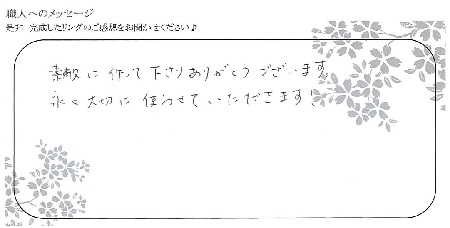 職人へのメッセージ
是非、完成したリングのご感想をお聞かせください♪
素敵に作って下さりありがとうございます。
永く大切に使わせていただきます!